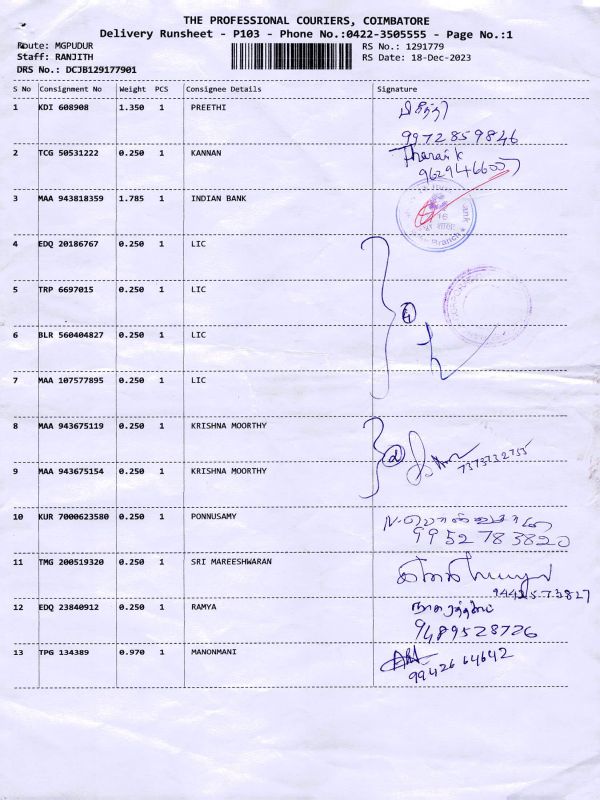 THE PROFESSIONAL COURIERS, COIMBATORE
Delivery Runsheet - P103 - Phone No.:0422-3505555 - Page No.:1
Route: MGPUDUR RS No.: 1291779
Staff: RANJITH RS Date: 18-Dec-2023
DRS No.: DCJB129177901
S No Consignment No Weight PCS Consignee Details Signature
1 KDI 608908 1.350 1 PREETHI
9972859846
2 TCG 50531222 0.250 1 KANNAN Tharani k
3 MAA 943818359 1.785 1 INDIAN BANK
Branch
4 EDQ 20186767 0.250 1 LIC
5 TRP 6697015 0.250 1 LIC
4
6 BLR 560404827 0.250 1 LIC
7 MAA 107577895 0.250 1 LIC
8 MAA 943675119 0.250 1 KRISHNA MOORTHY
2
7373732755
9 MAA 943675154 0.250 1 KRISHNA MOORTHY
10 KUR 7000623580 0.250 1 PONNUSAMY
9952783820
11 TMG 200519320 0.250 1 SRI MAREESHWARAN
9442573827
12 EDQ 23840912 0.250 1 RAMYA
9489528726
13 TPG 134389 0.970 1 MANONMANI
9942664642